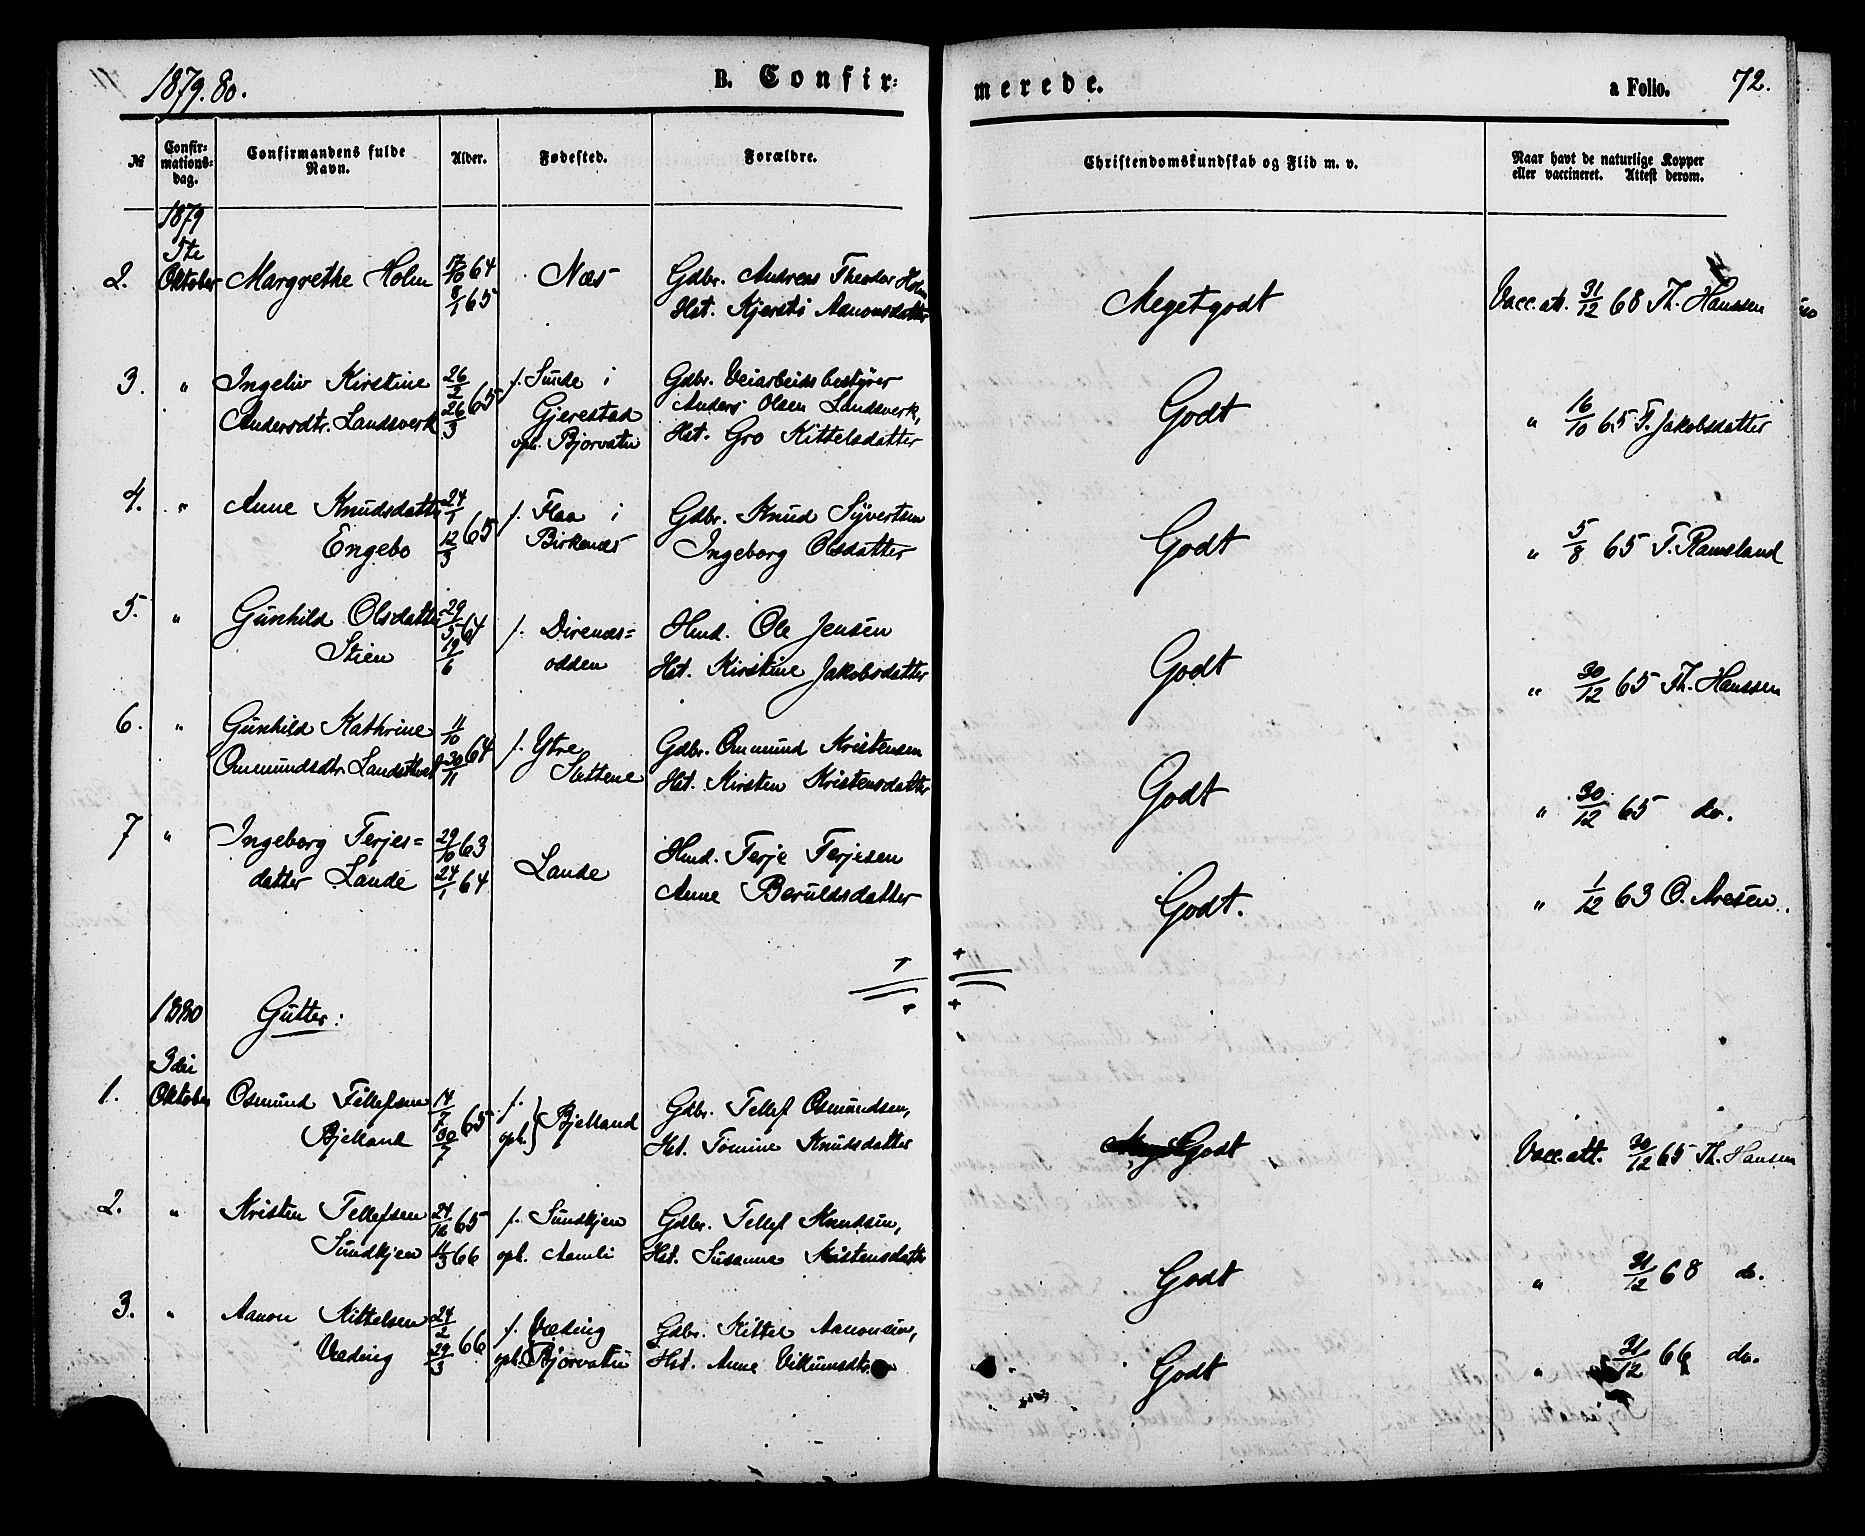 1879.80.
B. Confirmerede.
a Folio. 72.
№ Confirmationsdag. Confirmandens fulde Navn. Alder. Fødested. Forældre. Christendomskundskab og Flid m. v. Naar havt de naturlige Kopper eller vaccineret. Attest derom.
1879
5te
2. Oktober Margrethe Holm 17/10 64 Næs Gdbr. Andreas Theodor Holm Meget godt Vacc. att. 31/12 68 Th. Hanssen
8/1 65 Hst. Kjersti Aanonsdatter
3. " Ingeliv Kirstine 26/2 65 f. Sunde i Gdbr. Veiarbeidsbestyrer Godt " 16/10 65 T. Jakobsdatter
Andersdtr. Landsverk 26/3 Gjerestad Anders Olsen Landsverk,
oph. Bjorvatn Hst. Gro Kittelsdatter
4. " Anne Knudsdatter 24/1 65 f. Flaa i Gdbr. Knud Syvertsen Godt " 5/8 65 T. Ramsland
Engebo 12/3 Birkenæs Ingeborg Olsdatter
5. " Gunhild Olsdatter 29/5 64 f. Direnæs= Hmd. Ole Jensen Godt " 30/12 65 Th. Hanssen
Stien 19/6 odden Hst. Kirstine Jakobsdatter
6. " Gunhild Kathrine 11/10 64 f. Ytre Gdbr. Ommund Kristensen Godt " 30/12 65 do.
Ommundsdtr. 30/11 Slettene Hst. Kirsten Kristensdatter
7 " Ingeborg Terjes= 29/10 63 Lande Hmd. Terje Terjesen Godt. " 1/12 63 O. Aresen.
datter Lande 24/1 64 Anne Beruldsdatter
1880 Gutter:
3die
1. Oktober Osmund Tellefsen 14/7 65 f. Bjelland Gdbr. Tellef Osmundsen, Godt Vacc. att. 30/12 65 Th. Hansen
Bjelland 30/7 oph. Hst. Tomine Knudsdatter
2. " Kristen Tellefsen 24/12 65 f. Sundkjen Gdbr. Tellef Knudsen, Godt " 31/12 68 do.
Sundkjen 11/3 66 oph. Aamli Hst. Susanne Kristensdatter
3. " Aanon Kittelsen 24/2 66 f. Væding Gdbr. Kittel Aanonsen, Godt " 31/12 66 do.
Væding 29/3 oph. Bjorvatn Hst. Anne Vikumsdtr.